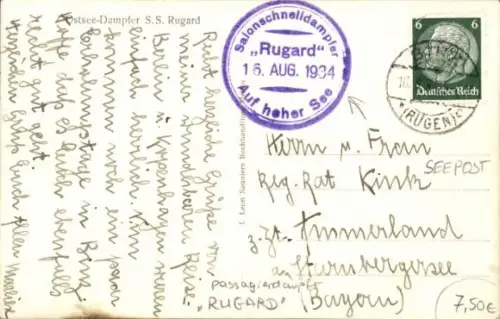 Ostsee-Dampfer S.S. Rugard
Salonschnelldampfer
„Rugard"
16. AUG. 1934
Auf hoher See
6 6
Deutsches Reich
(RÜGEN)
Recht herzliche Grüße von
meiner wunderbaren Reise.
Berlin u. Kopenhagen waren
einfach herrlich. Nun
kommen noch ein paar
Erholungstage in Binz.
Hoffe daß es Euch ebenfalls
recht gut geht.
Herzlichen Gruß Euch Allen
Herrn u. Frau
Reg. Rat Kink
z. Zt. Ammerland
am Starnbergersee
(Bayern)
SEEPOST
Passagierdampfer
"RUGARD"
7,50€